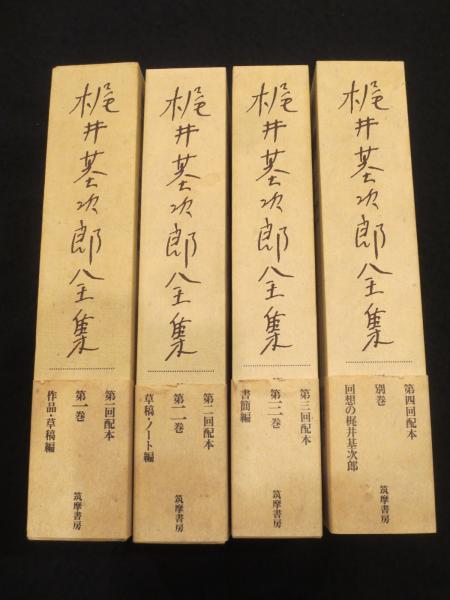 梶井基次郎全集
第一回配本
第一巻
作品・草稿編
筑摩書房
梶井基次郎全集
第二回配本
第二巻
草稿・ノート編
筑摩書房
梶井基次郎全集
第三回配本
第三巻
書簡編
筑摩書房
梶井基次郎全集
第四回配本
別巻
回想の梶井基次郎
筑摩書房